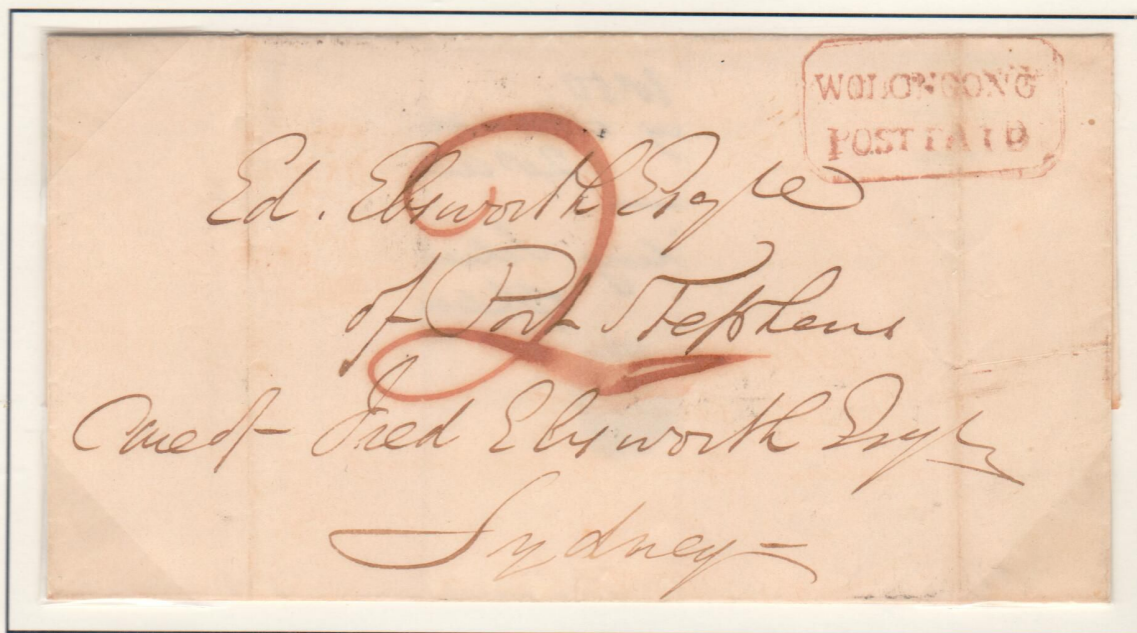 WOLONGONG
POST PAID
2
Ed. Ebsworth Esqre
of Port Stephens
Care of Fred Ebsworth Esqre
Sydney